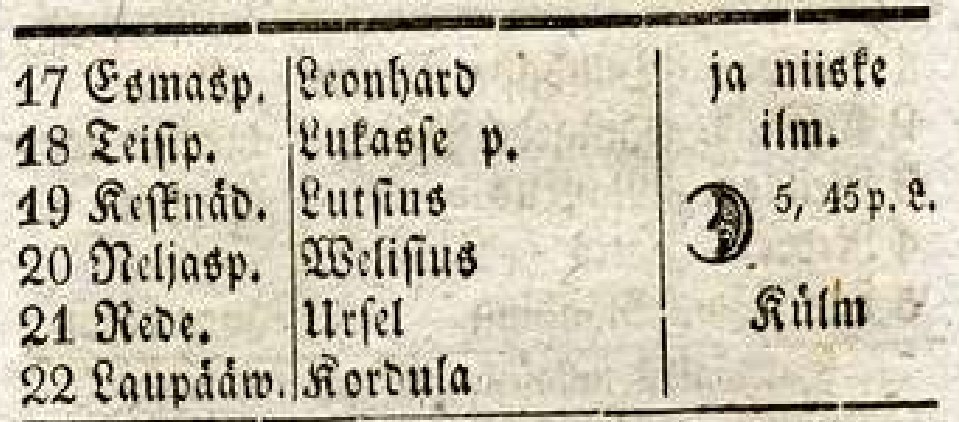 17 Esmasp. Leonhard ja niiske
18 Teisip. Lukasse p. ilm.
19 Kesknäd. Lutsius 5, 45 p. L.
20 Neljasp. Welisius
21 Rede. Ursel Külm
22 Laupääw. Kordula